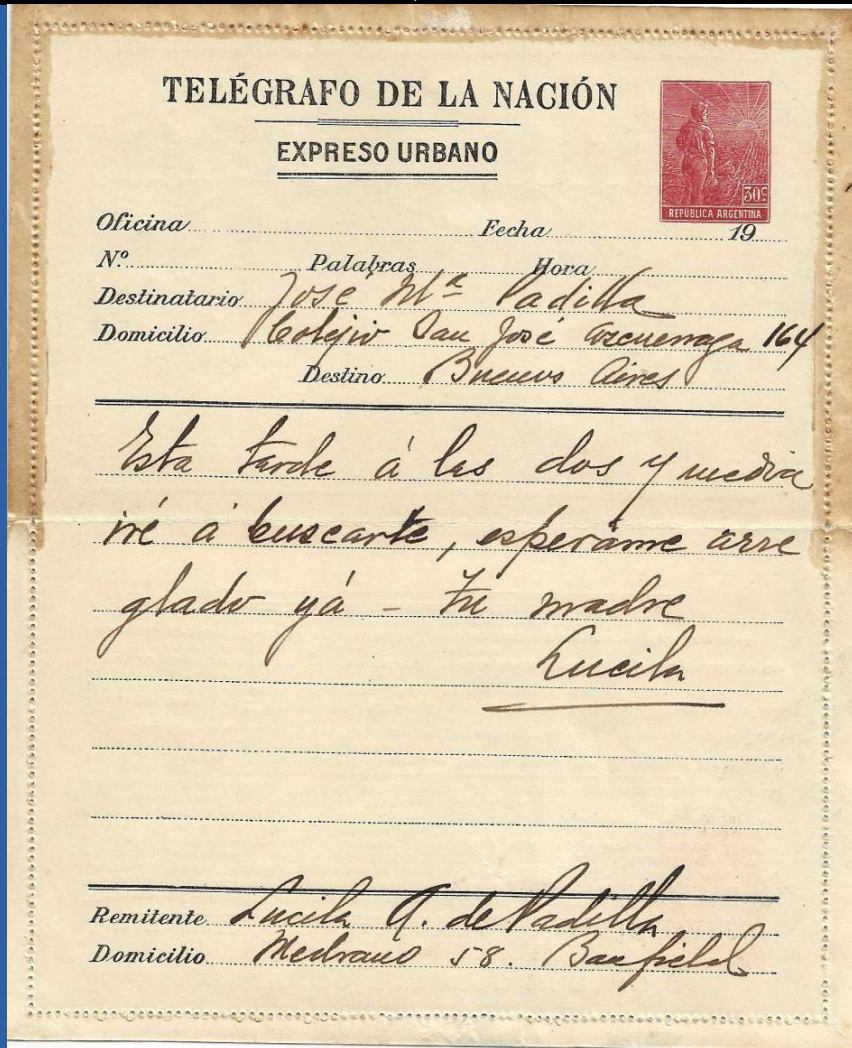 TELÉGRAFO DE LA NACIÓN
EXPRESO URBANO
30c
REPÚBLICA ARGENTINA
Oficina Fecha 19
Nº Palabras Hora
Destinatario José Mª Padilla
Domicilio Colejio San José Azcuenaga 164
Destino Buenos Aires
Esta tarde á las dos y media
iré á buscarte, esperáme arre
glado yá - Tu madre
Lucila
Remitente Lucila A. de Padilla
Domicilio Medrano 58. Banfield